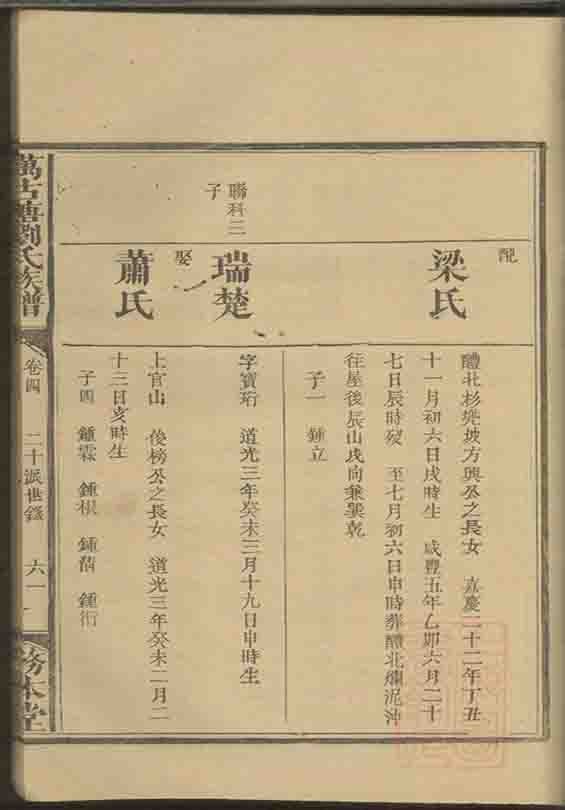 配
梁氏
醴北杉𡊢坡方興公之長女 嘉慶二十二年丁丑
十一月初六日戌時生 咸豐五年乙卯六月二十
七日辰時殁 至七月初六日申時葬醴北爛泥沖
往屋後辰山戌向兼巽乾
子一 鍾立
聯科三
子
瑞楚
字寶珩 道光三年癸未三月十九日申時生
娶
蕭氏
上官山 後榜公之長女 道光三年癸未二月二
十三日亥時生
子四 鍾霖 鍾根 鍾蒨 鍾衍
萬古塘劉氏族譜
卷四 二十派世錄 六一
務本堂